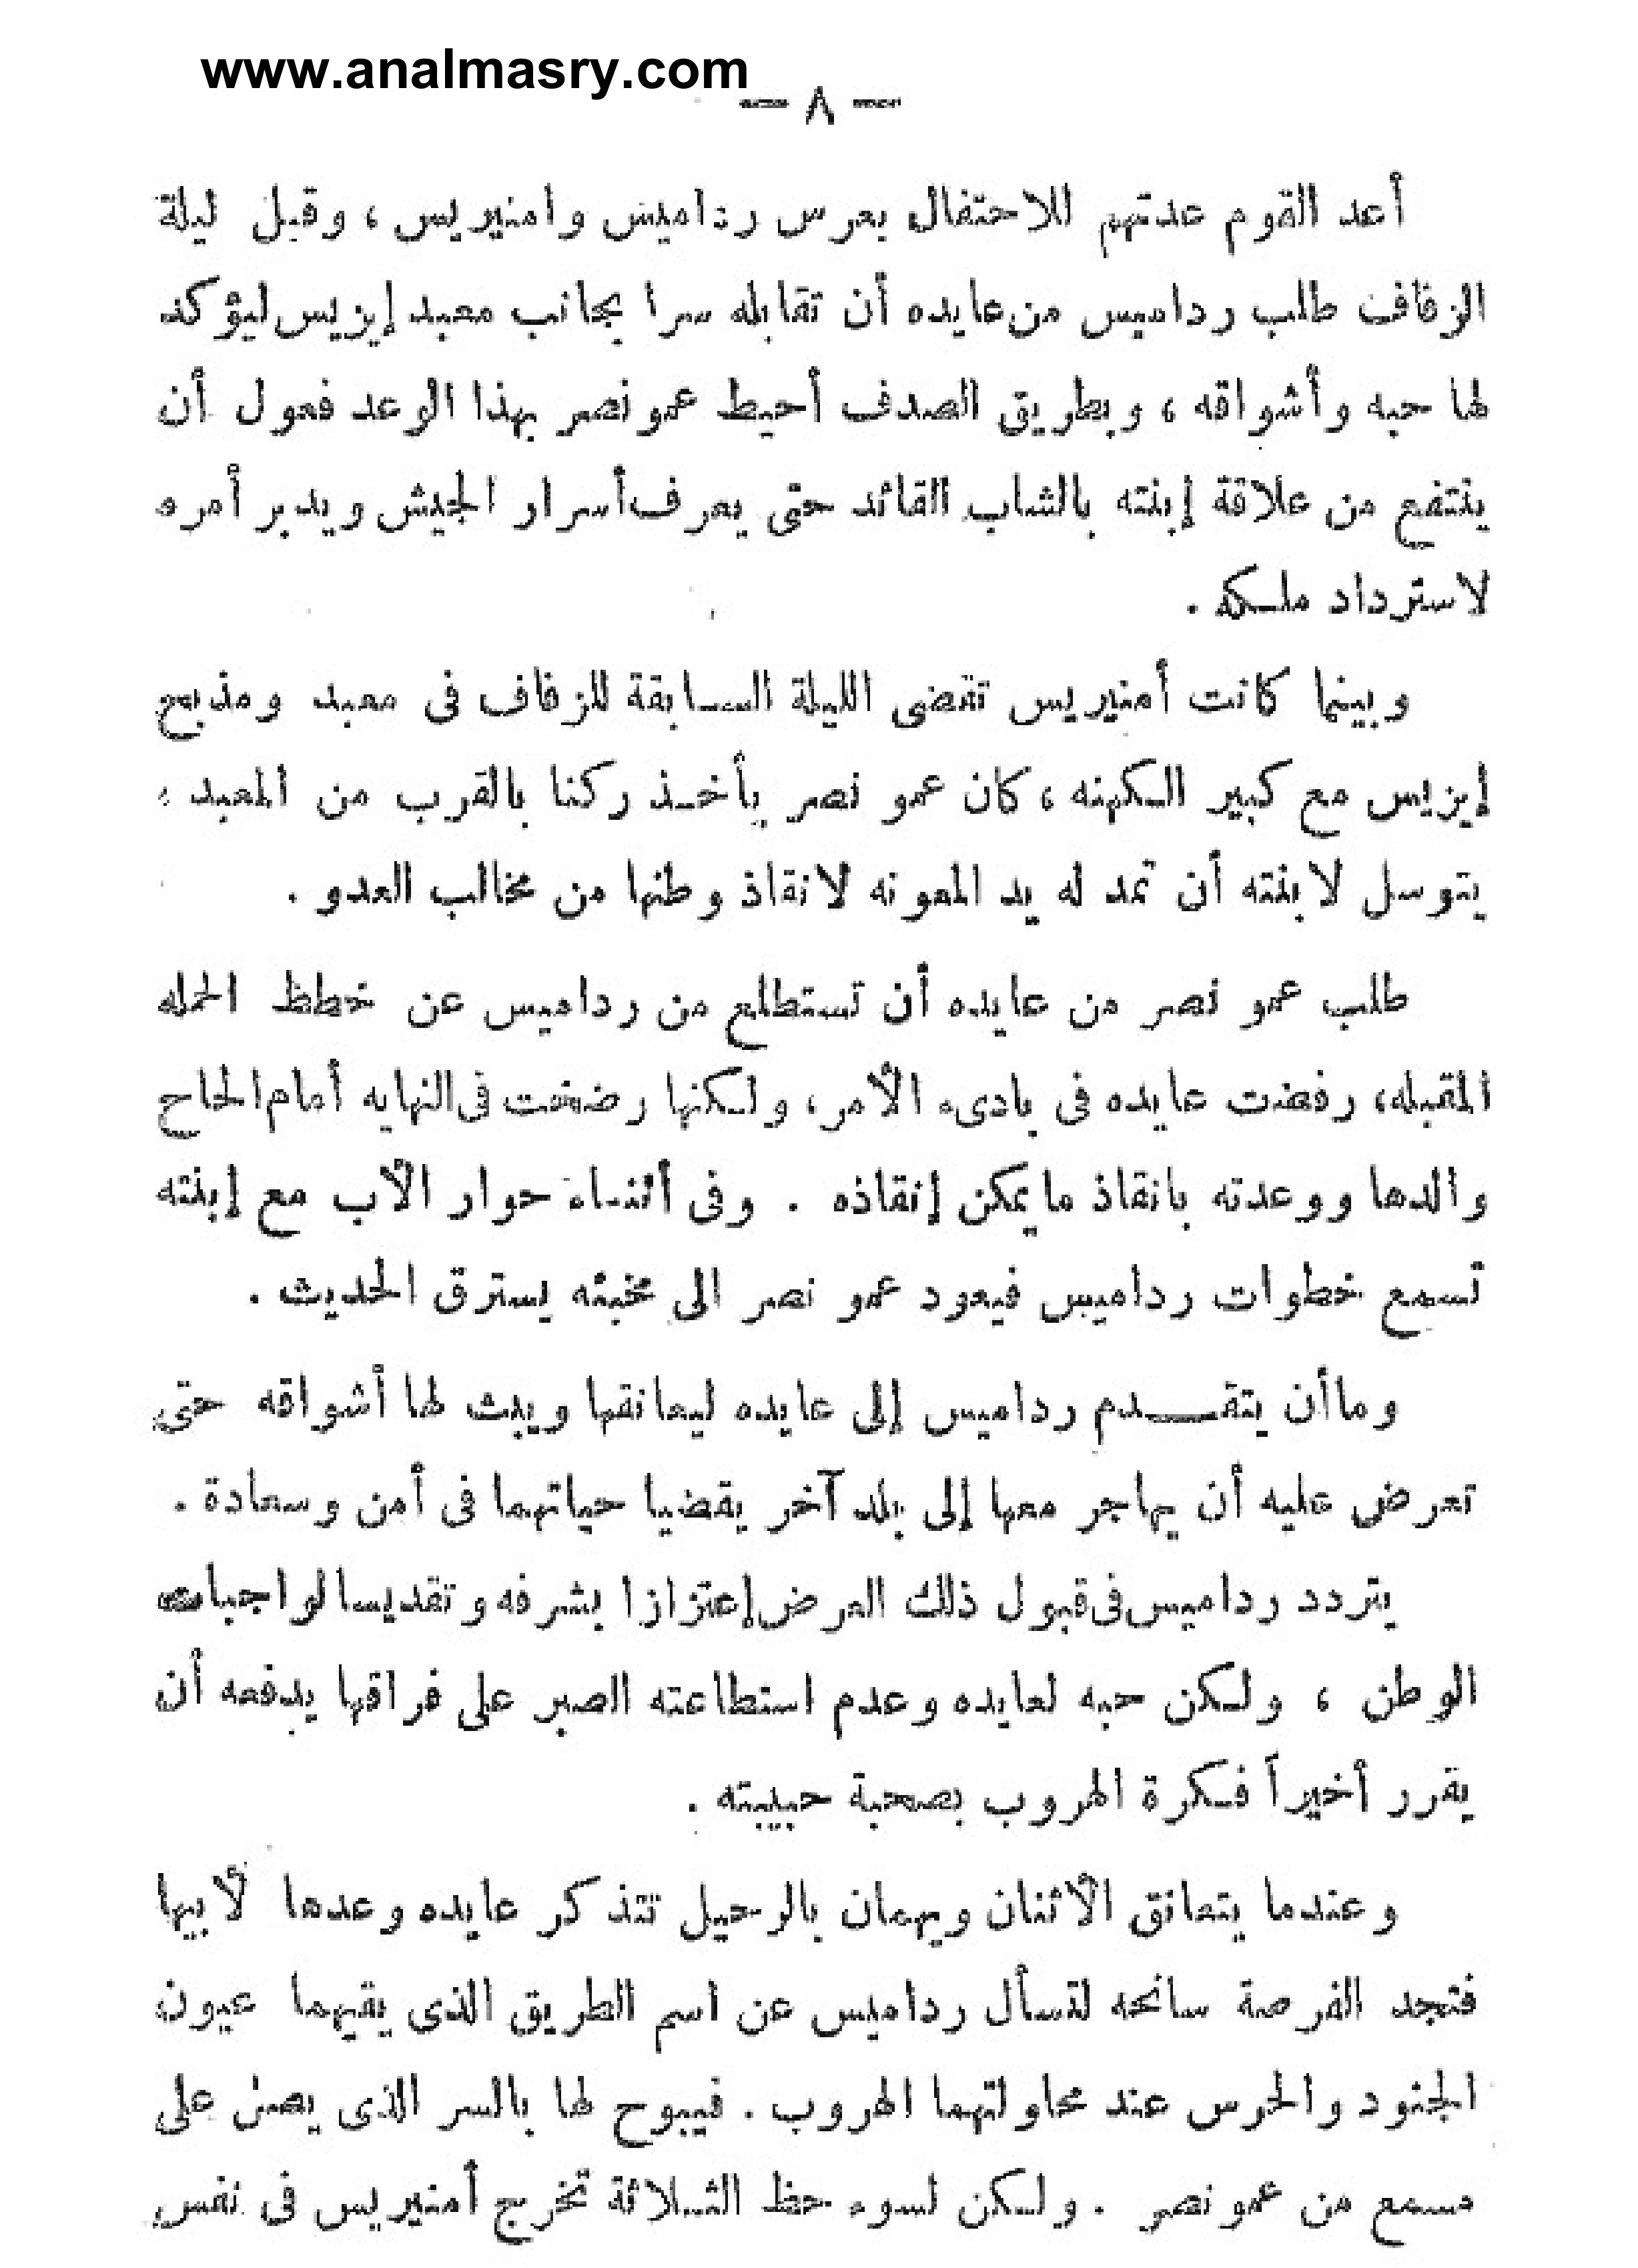 www.analmasry.com
— ٨ —
أعد القوم عدتهم للاحتفال بعرس رداميس وامنيريس ، وقبل ليلة
الزفاف طلب رداميس من عايده أن تقابله سرا بجانب معبد إيزيس ليؤكد
لها حبه وأشواقه ، وبطريق الصدف أحيط عمو نصر بهذا الوعد فعول أن
ينتفع من علاقة إبنته بالشاب القائد حتى يعرف أسرار الجيش ويدبر أمره
لاسترداد ملكه .
وبينما كانت أمنيريس تقضى الليلة السابقة للزفاف فى معبد ومذبح
إيزيس مع كبير الكهنه ، كان عمو نصر يأخذ ركنا بالقرب من المعبد ؛
يتوسل لابنته أن تمد له يد المعونه لانقاذ وطنها من مخالب العدو .
طلب عمو نصر من عايده أن تستطلع من رداميس عن خطط الحمله
المقبله، رفضت عايده فى بادىء الأمر، ولكنها رضخت فى النهايه أمام الحاح
والدها ووعدته بانقاذ ما يمكن إنقاذه . وفى أثناء حوار الأب مع إبنته
تسمع خطوات رداميس فيعود عمو نصر الى مخبئه يسترق الحديث .
وما أن يتقدم رداميس إلى عايده ليعانقها ويبث لها أشواقه حتى
تعرض عليه أن يهاجر معها إلى بلد آخر يقضيا حياتهما فى أمن وسعادة .
يتردد رداميس فى قبول ذلك العرض إعتزازا بشرفه وتقديسا لواجبات
الوطن ، ولكن حبه لعايده وعدم استطاعته الصبر على فراقها يدفعه أن
يقرر أخيراً فكرة الهروب بصحبة حبيبته .
وعندما يتعانق الأثنان ويهمان بالرحيل تتذكر عايده وعدها لأبيها
فتجد الفرصة سانحه لتسأل رداميس عن اسم الطريق الذى يقيهما عيون
الجنود والحرس عند محاولتهما الهروب . فيبوح لها بالسر الذى يصل على
مسمع من عمو نصر . ولكن لسوء حظ الثلاثة تخرج أمنيريس فى نفس